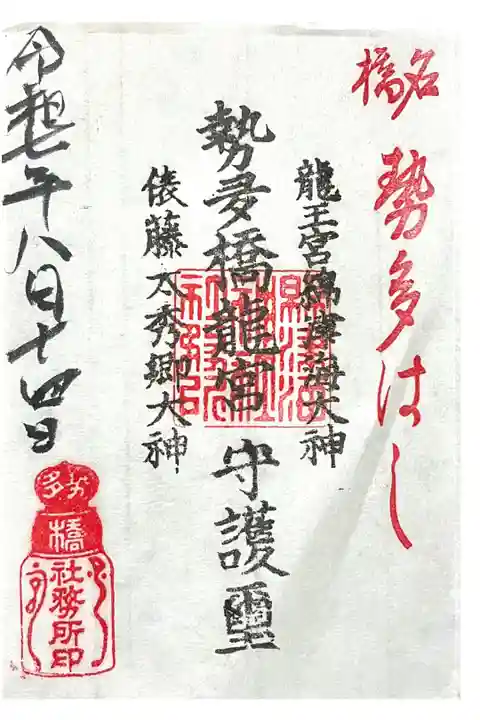 名橋
勢多はし
龍王宮綿津海大神
勢多橋龍宮 守護璽
俵藤太秀郷大神
令和七年八月十四日
勢多
橋
社務所印